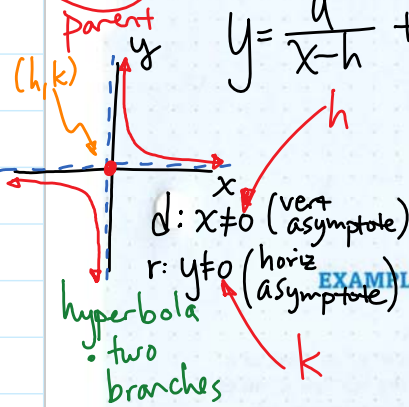 parent
y
y = a / x-h +
(h,k)
h
x
d: x≠0 (vert asymptote)
r: y≠0 (horiz asymptote)
EXAMPL
hyperbola
• two
branches
k